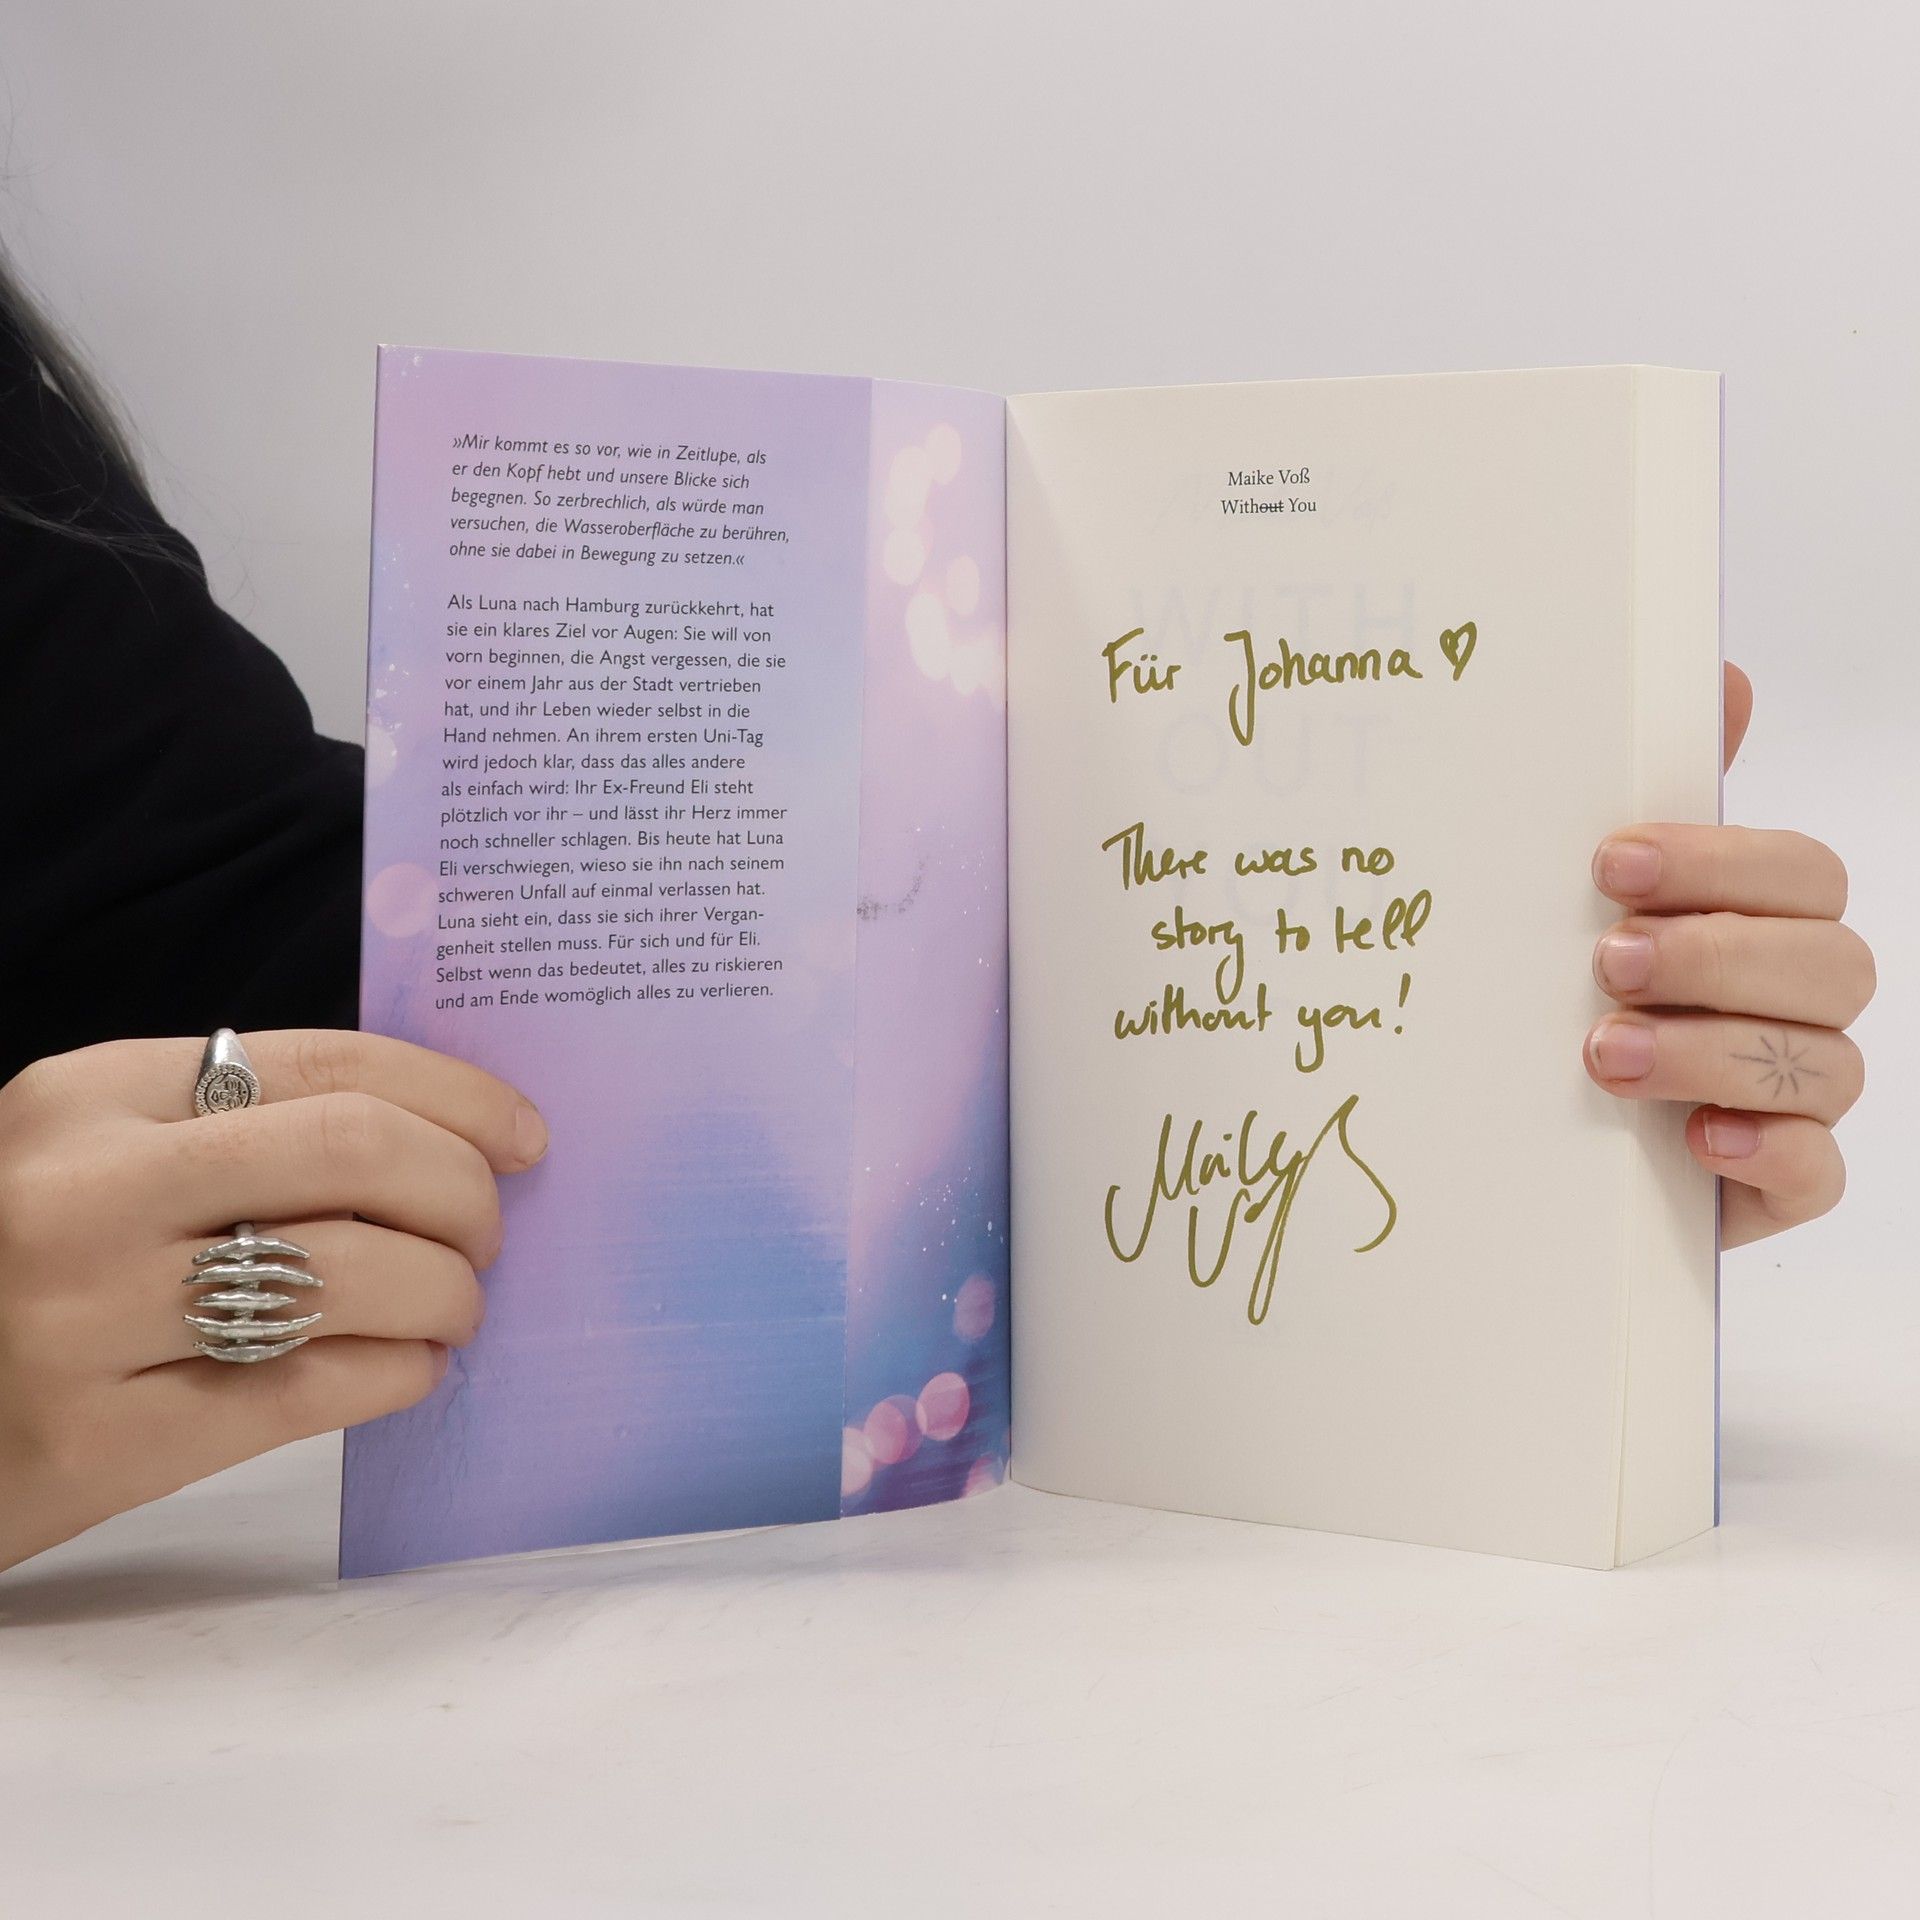 »Mir kommt es so vor, wie in Zeitlupe, als
er den Kopf hebt und unsere Blicke sich
begegnen. So zerbrechlich, als würde man
versuchen, die Wasseroberfläche zu berühren,
ohne sie dabei in Bewegung zu setzen.«
Als Luna nach Hamburg zurückkehrt, hat
sie ein klares Ziel vor Augen: Sie will von
vorn beginnen, die Angst vergessen, die sie
vor einem Jahr aus der Stadt vertrieben
hat, und ihr Leben wieder selbst in die
Hand nehmen. An ihrem ersten Uni-Tag
wird jedoch klar, dass das alles andere
als einfach wird: Ihr Ex-Freund Eli steht
plötzlich vor ihr – und lässt ihr Herz immer
noch schneller schlagen. Bis heute hat Luna
Eli verschwiegen, wieso sie ihn nach seinem
schweren Unfall auf einmal verlassen hat.
Luna sieht ein, dass sie sich ihrer Vergan-
genheit stellen muss. Für sich und für Eli.
Selbst wenn das bedeutet, alles zu riskieren
und am Ende womöglich alles zu verlieren.
Maike Voß
Without You
Für Johanna ♡
There was no
story to tell
without you!
Maike
Voß